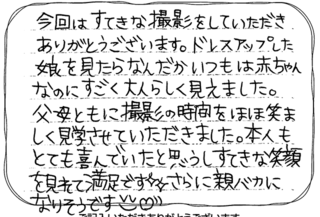 今回はすてきな撮影をしていただき
ありがとうございます。ドレスアップした
娘を見たらなんだかいつもは赤ちゃん
なのにすごく大人らしく見えました。
父母ともに撮影の時間をほほ笑ま
しく見学させていただきました。本人も
とても喜んでいたと思うしすてきな笑顔
を見れて満足です☆☆さらに親バカに
なりそうです
ご記入いただきありがとうございます